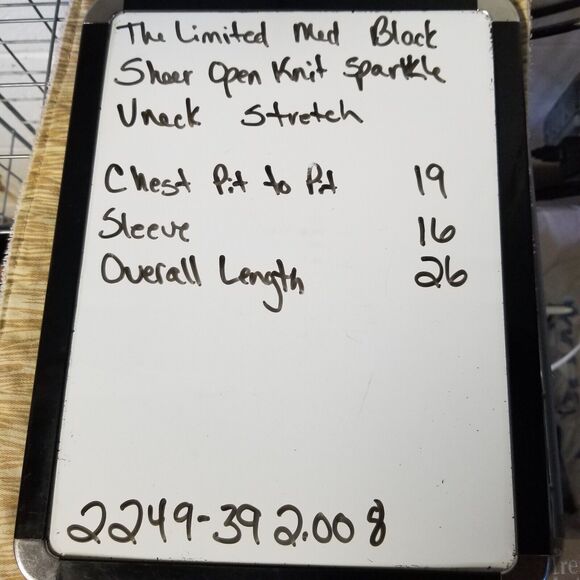 The Limited Med Black
Sheer Open Knit Sparkle
Vneck Stretch
Chest Pit to Pit 19
Sleeve 16
Overall Length 26
2249-392.00 8